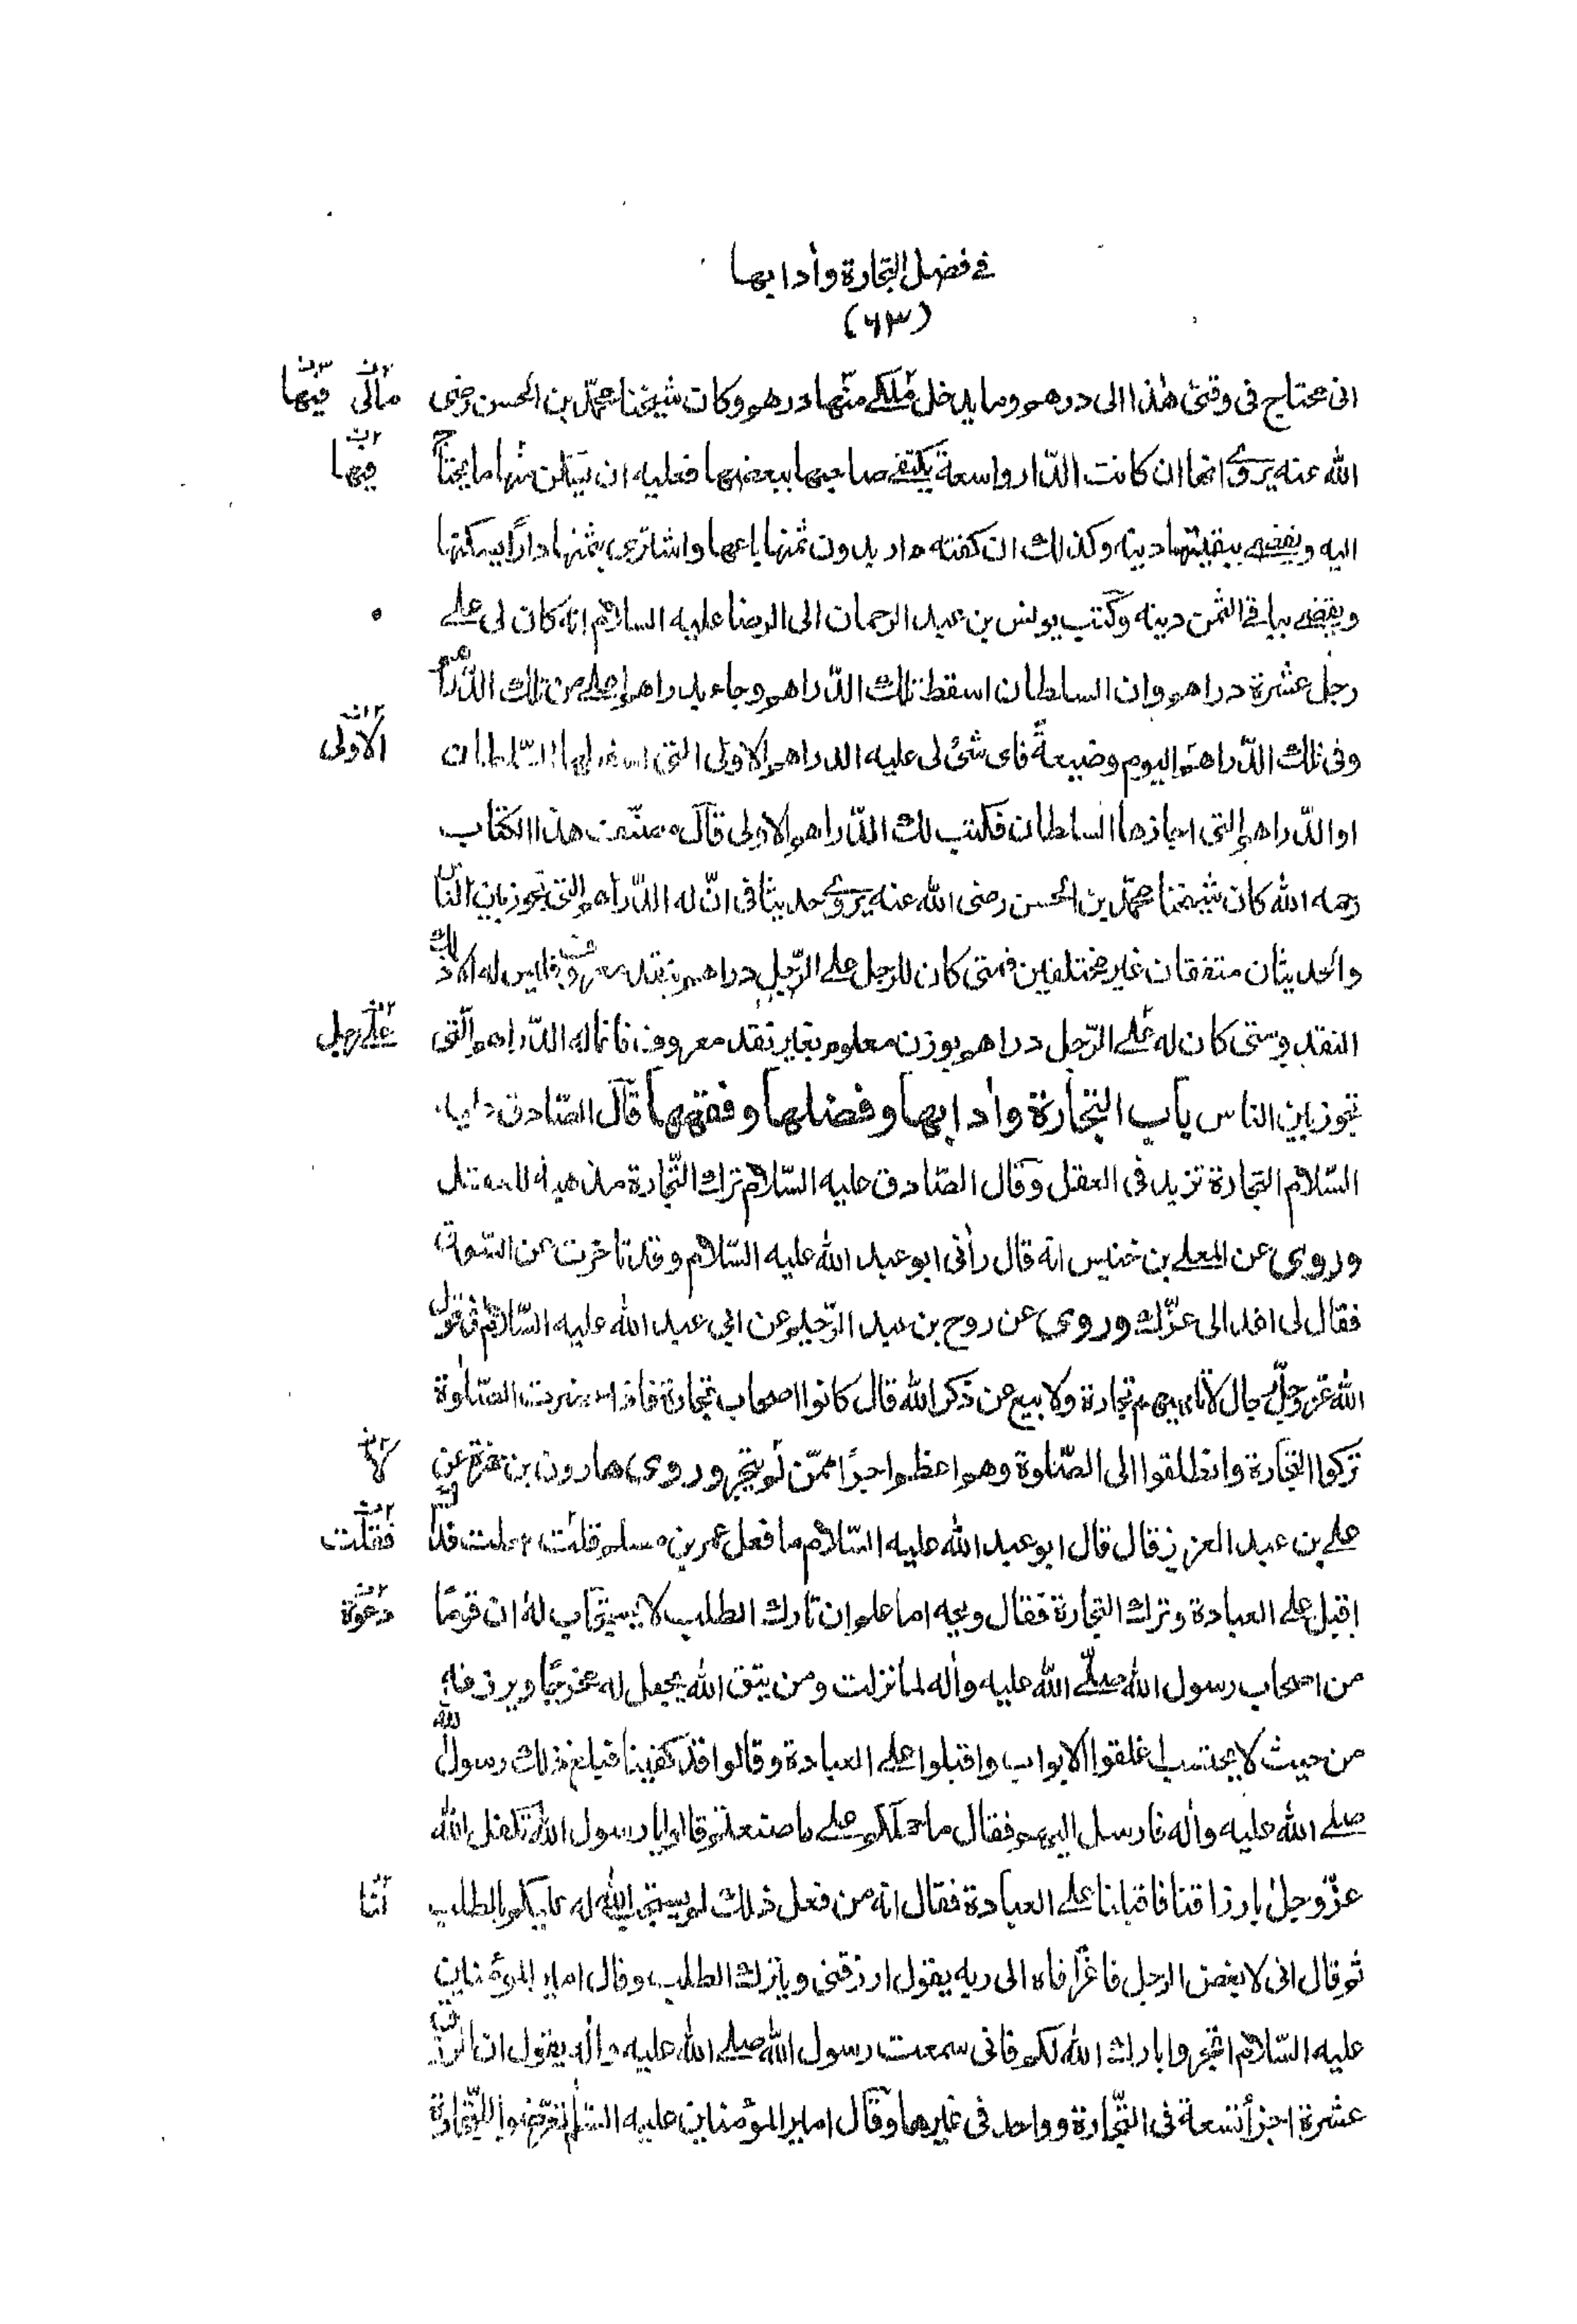 في فضل التجارة وأدابها
(٦٣)
انی محتاج فی وقتی هذا الی درهم وما یدخل ملکی منها درهم وکان شیخنا محمّد بن الحسن رضی
مالی فیها
الله عنه یروی انها ان کانت الدّار واسعة یکتفی صاحبها ببعضها فعلیه ان یسکن منها ما یحتاج
فیها
الیه ویقضی ببقیتها دینه وکذلك ان کفته دار بدون ثمنها باعها واشتری بثمنها دارًا یسکنها
ویقضی بباقی الثمن دینه وکتب یونس بن عبد الرحمان الی الرضا علیه السلام انه کان لی علی
رجل عشرة دراهم وان السلطان اسقط تلك الدّراهم وجاء بدراهم اعلی من تلك الدّراهم
وفی تلك الدّراهم الیوم وضیعةً فای شئ لی علیه الدراهم الاولی التی اسقطها السّلطان
الاولی
او الدّراهم التی اجازها السلطان فکتب لك الدّراهم الاولی قال مصنّف هذا الکتاب
رحمه الله کان شیخنا محمّد بن الحسن رضی الله عنه یروی حدیثا فی انّ له الدّراهم التی تجوز بین النّاس
والحدیثان متفقان غیر مختلفین فمتی کان للرجل علی الرّجل دراهم بنقد معروف فلیس له الا ذلك
النقد ومتی کان له علی الرّجل دراهم بوزن معلوم بغیر نقد معروف فانما له الدّراهم الّتی
علی رجل
تجوز بین الناس باب التجارة وادابها وفضلها وفقهها قال الصّادق علیه
السّلام التجارة تزید فی العقل وقال الصّادق علیه السّلام ترك التّجارة مذهبة للعقل
وروی عن المعلی بن خنیس انه قال رأنی ابو عبد الله علیه السّلام وقد تأخرت عن السّوق
فقال لی اغد الی عزّك وروی عن روح بن عبد الرّحیم عن ابی عبد الله علیه السّلام فی قول
الله عزّ وجلّ رجال لا تلهیهم تجارة ولا بیع عن ذکر الله قال کانوا اصحاب تجارة فاذا حضرت الصّلوة
ترکوا التجارة وانطلقوا الی الصّلوة وهم اعظم اجرًا ممّن لم یتجر وروی هارون بن حمزة عن
علی بن عبد العزیز قال قال ابو عبد الله علیه السّلام ما فعل عمر بن مسلم قلت جعلت فداك
فقلت
اقبل علی العبادة وترك التجارة فقال ویحه اما علم ان تارك الطلب لا یستجاب له ان قومًا
دعوة
من اصحاب رسول الله صلّی الله علیه وأله لما نزلت ومن یتق الله یجعل له مخرجًا ویرزقه
من حیث لا یحتسب اغلقوا الابواب واقبلوا علی العبادة وقالوا قد کفینا فبلغ ذلك رسول الله
صلی الله علیه وأله فارسل الیهم فقال ما حملکم علی ما صنعتم قالوا یا رسول الله تکفل الله
عزّ وجلّ بارزاقنا فاقبلنا علی العبادة فقال انه من فعل ذلك لم یستجب الله له علیکم بالطلب
ثم قال انی لابغض الرجل فاغرًا فاه الی ربه یقول ارزقنی ویترك الطلب وقال امیر المؤمنین
علیه السّلام اتجروا بارك الله لکم فانی سمعت رسول الله صلی الله علیه وأله یقول ان الرزق
عشرة اجزأ تسعة فی التّجارة وواحد فی غیرها وقال امیر المؤمنین علیه السّلام تعرّضوا للتّجارة